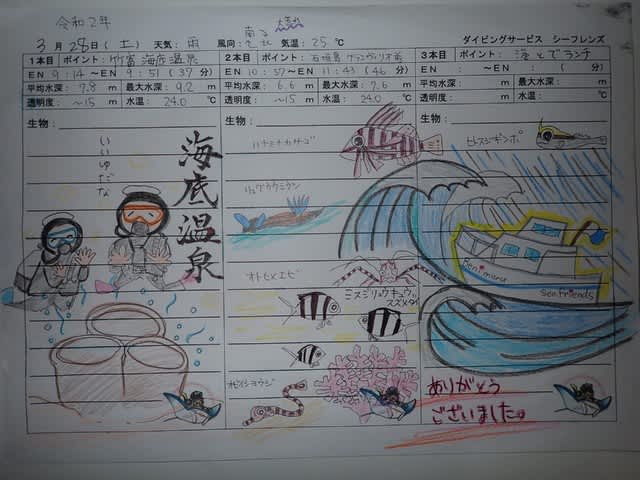 令和2年
3月28日(土) 天気: 雨 風向: 南→北 気温: 25℃ ダイビングサービス シーフレンズ
1本目 ポイント: 竹富 海底温泉
EN 9:14~EN 9:51 (37分)
平均水深: 7.8 m 最大水深: 9.2 m
透明度: ~15 m 水温: 24.0 ℃
生物:
いいゆだな
海底温泉
2本目 ポイント: 石垣島
EN 10:57~EN 11:43 (46分)
平均水深: 6.6 m 最大水深: 7.6 m
透明度: ~15 m 水温: 24.0 ℃
生物:
ハナミノカサゴ
リュウグウウミウシ
オトヒメエビ
ミスジリュウキュウ
スズメダイ
オビイシヨウジ
3本目 ポイント: 港とでランチ
EN : ~EN : ( 分)
平均水深: m 最大水深: m
透明度: m 水温: ℃
生物:
ヒトスジギンポ
Benimaru
Sea friends
ありがとう
ございました